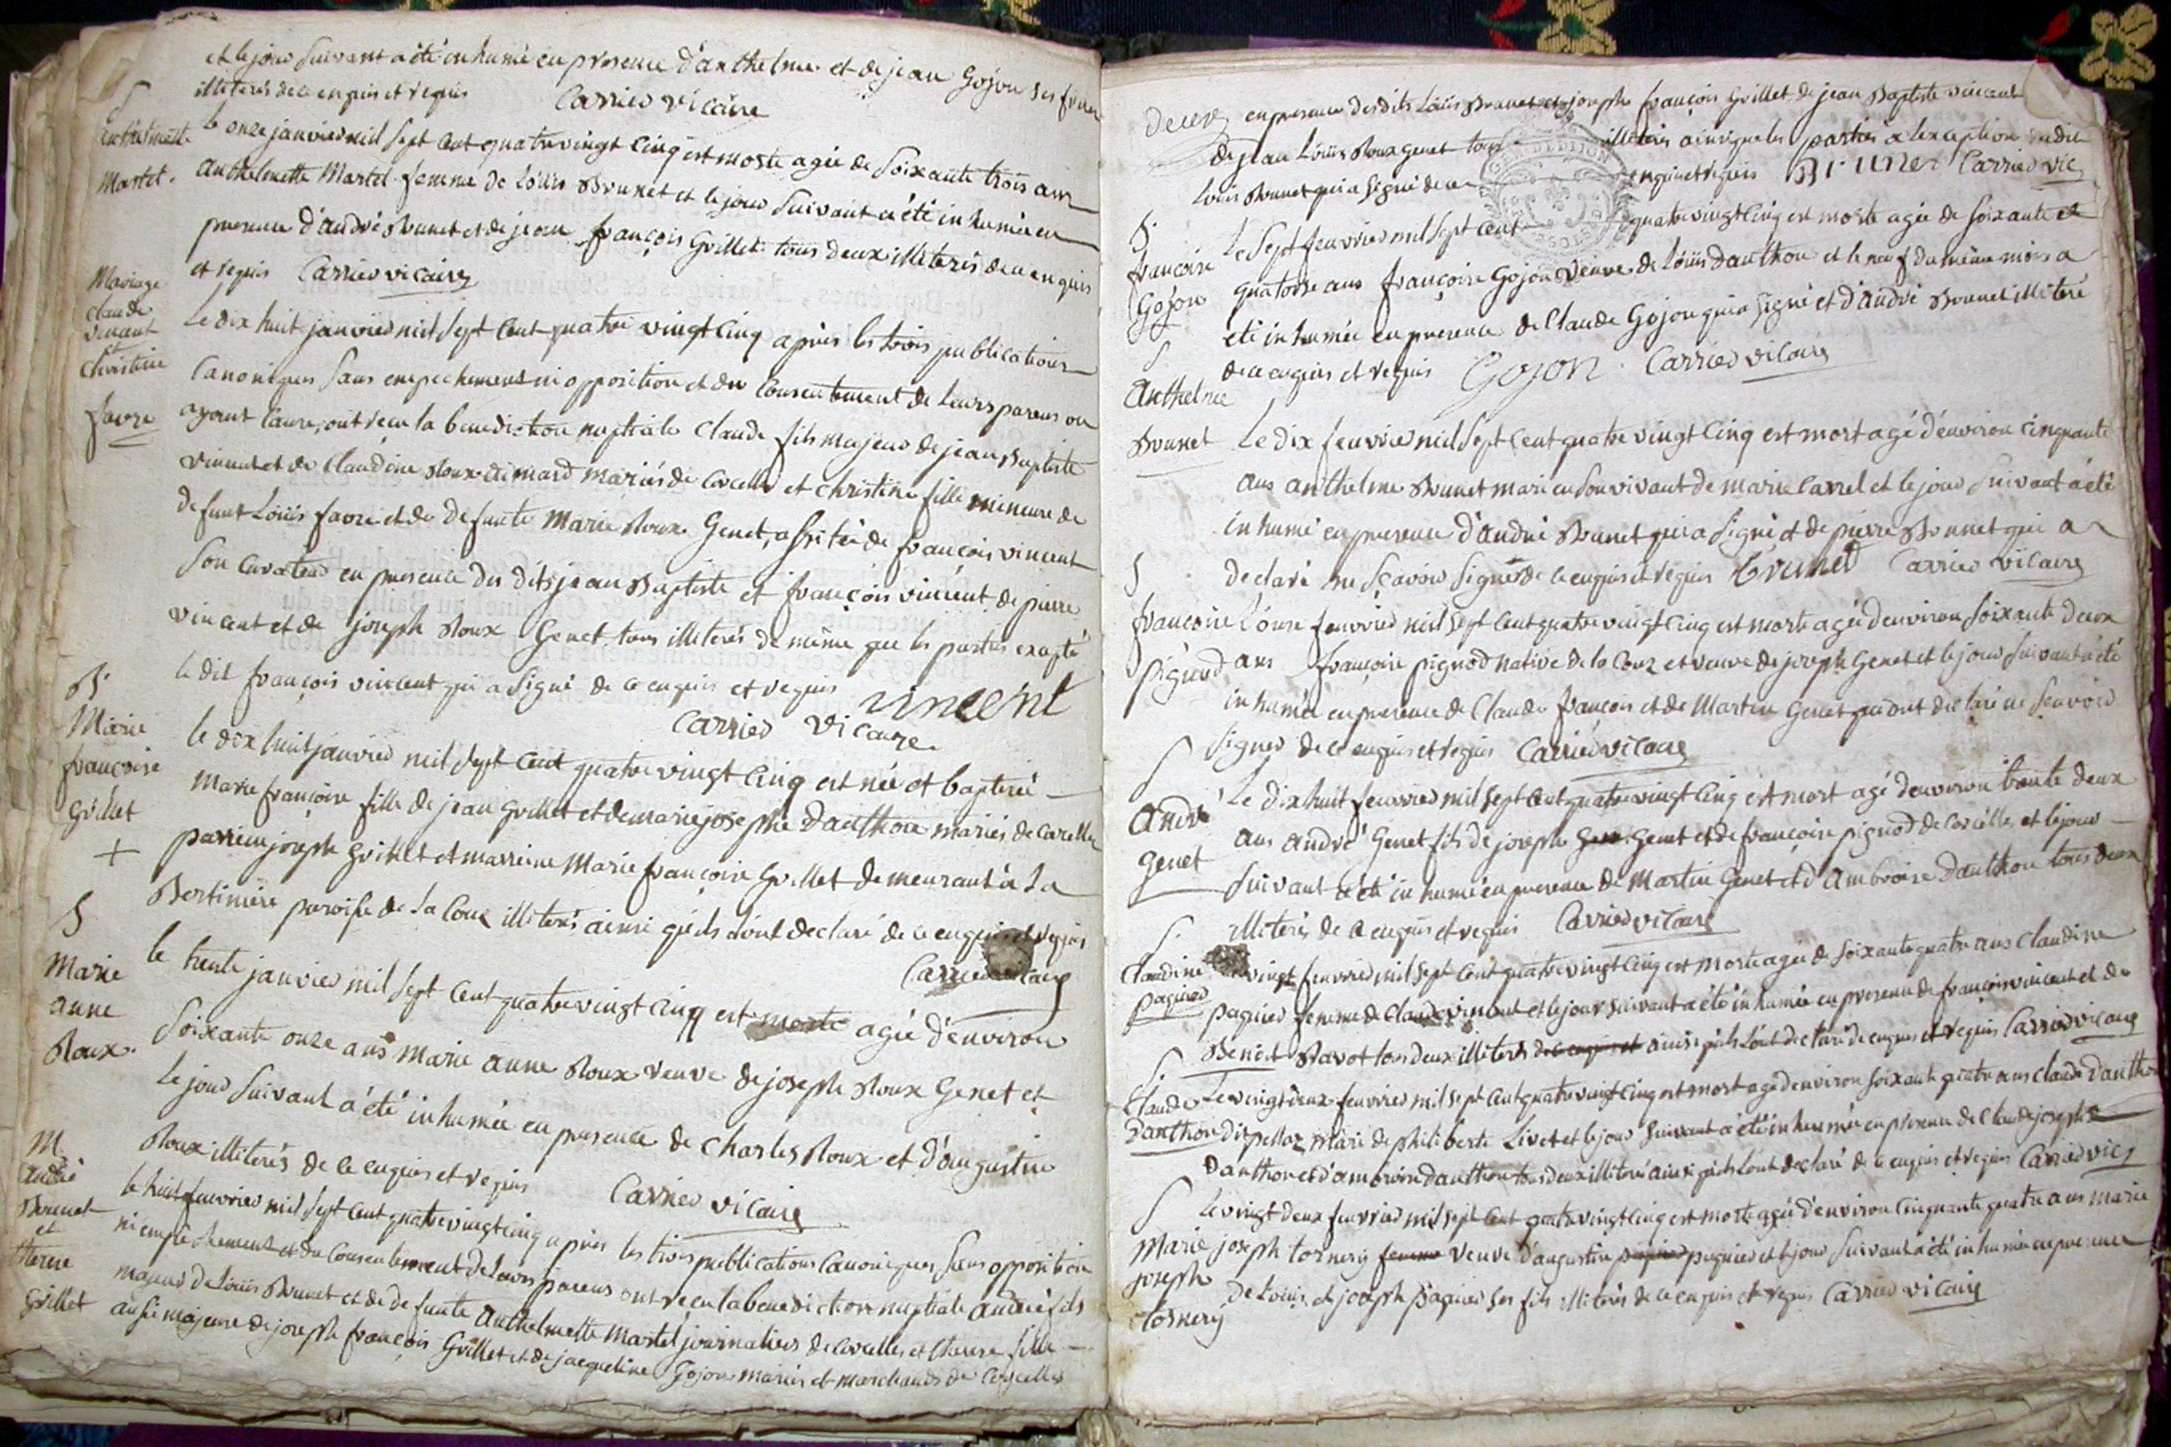 et le jour suivant a été inhumé en présence d'anthelme et de jean Gojon ses freres
illiterés de ce enquis et requis Carrier vicaire
S
anthelmette
Martel.
le onze janvier mil sept cent quatre vingt cinq est morte agée de soixante trois ans
anthelmette Martel femme de Loüis Brunet et le jour suivant a été inhumée en
presence d'andré Brunet et de jean françois Grillet tous deux illiterés de ce enquis
et requis Carrier vicaire
Mariage
claude
vincent
et
christine
favre
Le dix huit janvier mil sept cent quatre vingt cinq après les trois publications
canoniques sans empechement ni opposition et du consentement de leurs parens ou
ayant cause, ont reçu la benediction nuptiale claude fils majeur de jean Baptiste
vincent et de claudine Roux mariés de Corcelle et christine fille mineure de
defunt Loüis favre et de defunte Marie Roux Genet, assistée de françois vincent
son curateur en presence du dit jean Baptiste et françois vincent de pierre
vincent et de joseph Roux Genet tous illiterés de même que les parties excepté
le dit françois vincent qui a signé de ce enquis et requis vincent
Carrier vicaire
B.
Marie
françoise
Grillet
+
le dix huit janvier mil sept cent quatre vingt cinq est née et baptisée
Marie françoise fille de jean Grillet et de marie josephe Danthon mariés de Corcelle
parrein joseph Grillet et marreine Marie françoise Grillet demeurant à la
Bertiniere paroisse de la Couz illiterés ainsi qu'ils l'ont declaré de ce enquis et requis
Carrier vicaire
S
Marie
anne
Roux.
le trente janvier mil sept cent quatre vingt cinq est morte agée d'environ
soixante onze ans Marie anne Roux veuve de joseph Roux Genet et
le jour suivant a été inhumée en presence de charles Roux et d'augustin
Roux illiterés de ce enquis et requis Carrier vicaire
M
andré
Brunet
et
therese
Grillet
le huit fevrier mil sept cent quatre vingt cinq après les trois publications canoniques sans opposition
ni empêchement et du consentement de leurs parens ont reçu la benediction nuptiale andré fils
majeur de Loüis Brunet et de defunte anthelmette Martel journaliers de Corcelles et therese fille
aussi majeure de joseph françois Grillet et de jacqueline Gojon mariés et marchands de Corcelles
en presence desdits Loüis Brunet et joseph françois Grillet de jean Baptiste vincent
de jean Loüis Roux Genet tous illiterés ainsi que les parties a l'exception dudit
Loüis Brunet qui a signé de ce enquis et requis Brunet Carrier vic
S.
françoise
Gojon
Le sept fevrier mil sept cent quatre vingt cinq est morte agée de soixante et
quatorse ans françoise Gojon veuve de Loüis danthon et le neuf du même mois a
été inhumée en presence de Claude Gojon qui a signé et d'andré Brunet illiteré
de ce enquis et requis Gojon Carrier vicaire
S
Anthelme
Brunet
Le dix fevrier mil sept cent quatre vingt cinq est mort agé d'environ cinquante
ans anthelme Brunet mari en son vivant de marie Carrel et le jour suivant a été
inhumé en presence d'andré Brunet qui a signé et de pierre Brunet qui a
declaré ne sçavoir signer de ce enquis et requis Brunet Carrier vicaire
S
françoise
pignod
L'onze fevrier mil sept cent quatre vingt cinq est morte agée d'environ soixante deux
ans françoise pignod native de la Couz et veuve de joseph Genet et le jour suivant a été
inhumée en presence de Claude françois et de Martin Genet qui ont declaré ne sçavoir
signer de ce enquis et requis Carrier vicaire
S
André
Genet
Le dix huit fevrier mil sept cent quatre vingt cinq est mort agé d'environ trente deux
ans andré Genet fils de joseph Genet et de françoise pignod de Corcelles et le jour
suivant a été inhumé en presence de Martin Genet et d'ambroise Danthon tous deux
illiterés de ce enquis et requis Carrier vicaire
S.
Claudine
paquier
vingt fevrier mil sept cent quatre vingt cinq est morte agée de soixante quatre ans claudine
paquier femme de Claude vincent et le jour suivant a été inhumée en presence de françois vincent et de
Benoit Ravot tous deux illiterés de ce enquis et ainsi qu'ils l'ont declaré de enquis et requis Carrier vicaire
S
Claude
Danthon
Le vingt deux fevrier mil sept cent quatre vingt cinq est mort agé d'environ soixante quatre ans claude Danthon
dit pellaz mari de philiberte Livet et le jour suivant a été inhumé en presence de Claude joseph
Danthon et d'ambroise danthon tous deux illiterés ainsi qu'ils l'ont declaré de ce enquis et requis Carrier vic
S
Marie
joseph
tornery
Le vingt deux fevrier mil sept cent quatre vingt cinq est morte agée d'environ cinquante quatre ans marie
joseph tornery femme veuve d'augustin paquier et le jour suivant a été inhumée en presence
de Loüis et joseph paquier ses fils illiterés de ce enquis et requis Carrier vicaire